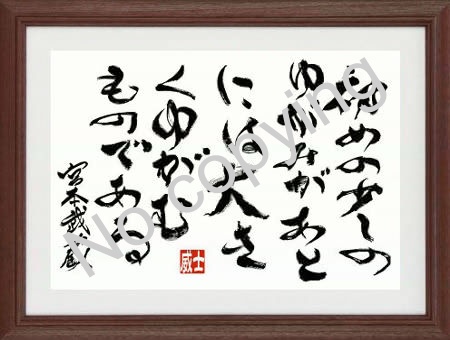 初めの少しの
ゆがみがあと
には大き
くゆがむ
ものである
宮本武蔵
威士
No copying